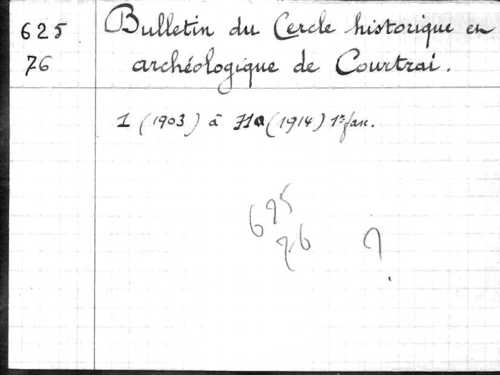 625 Bulletin du Cercle historique en
76 archéologique de Courtrai.
1 (1903) à (1914) 1r fasc.
625
76 ?